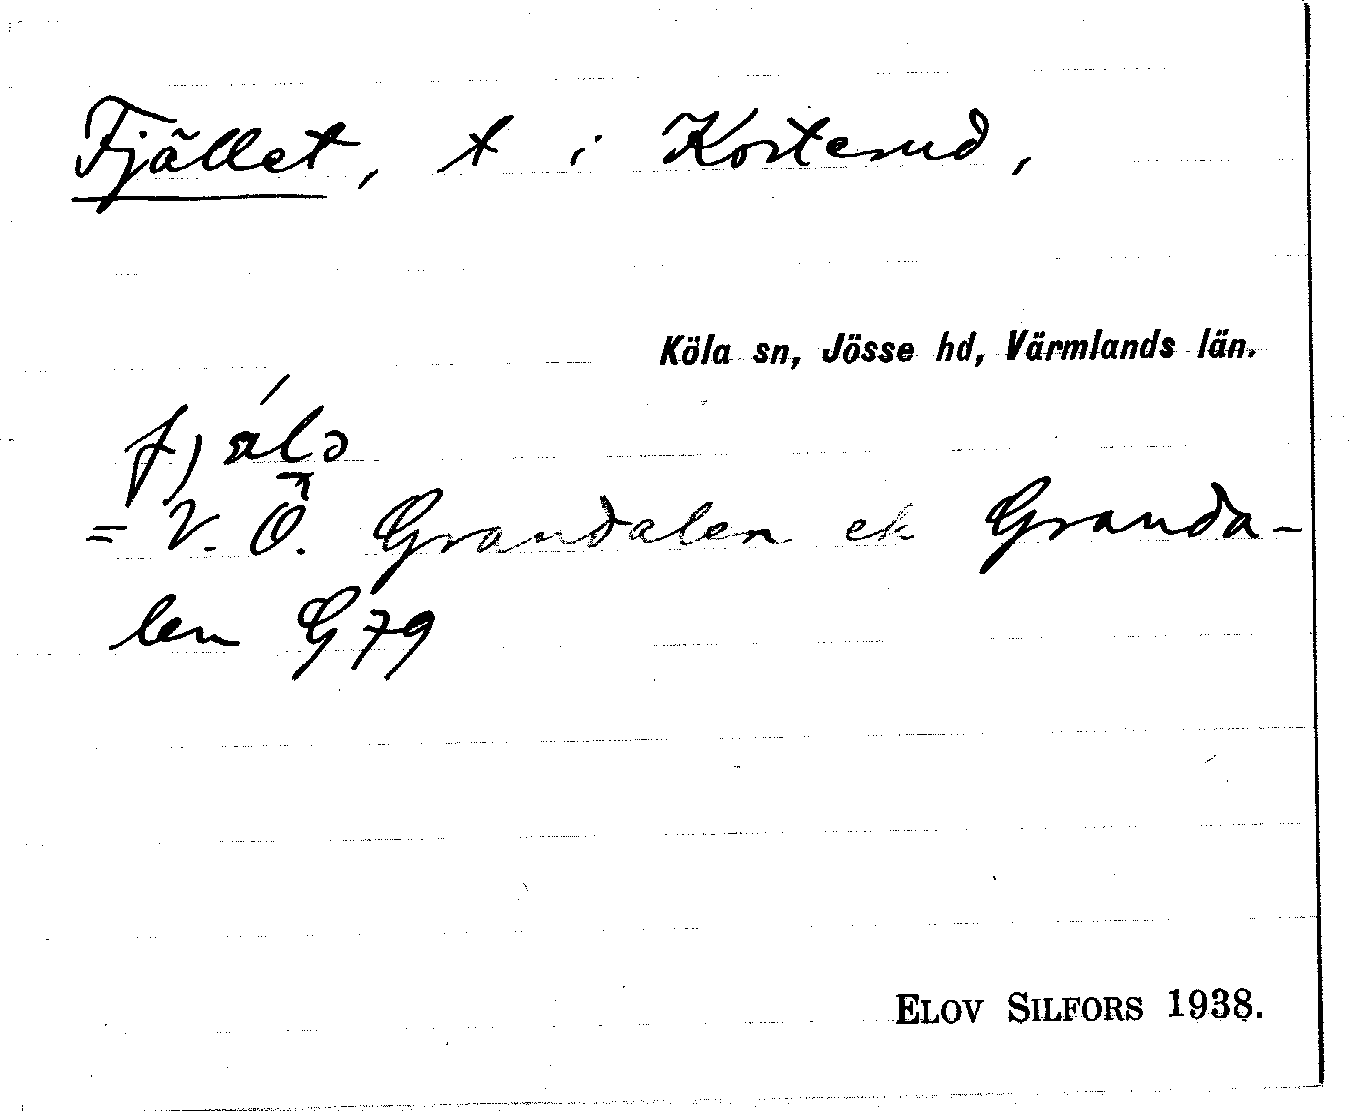 Fjället, t i Korterud,
Köla sn, Jösse hd, Värmlands län.
fjälə
= V. Ö. Grandalen ek Granda-
len G 79
ELOV SILFORS 1938.